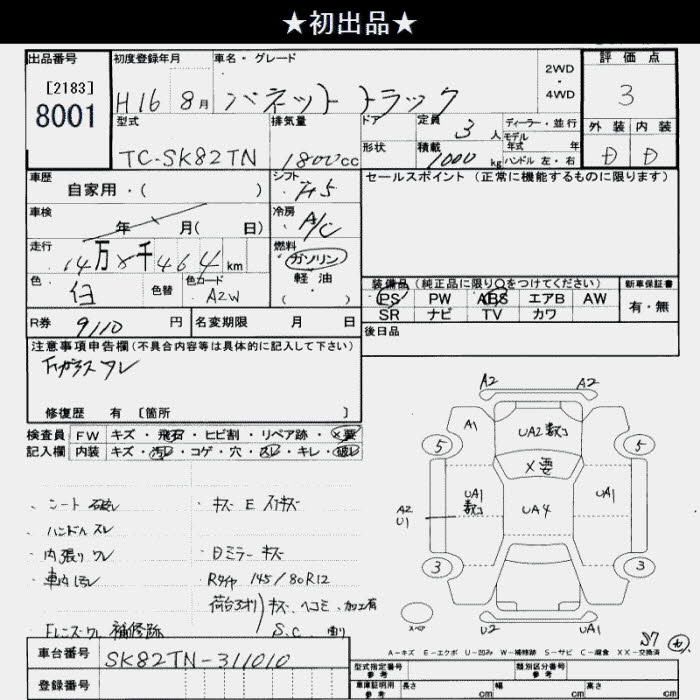 ★初出品★
出品番号 初度登録年月 車名・グレード 2WD ・ 4WD 評価点
[2183]
8001 H16 8月 バネットトラック 3
型式 排気量 ドア 定員 3人 ディーラー・並行 外装 内装
モデル年式 年
TC-SK82TN 1800cc 形状 積載 1000kg ハンドル 左・右 D D
車歴 自家用・( ) シフト F5 セールスポイント(正常に機能するものに限ります)
車検 年 月( 日) 冷房 A/C
走行 14万 千464km 燃料 ガソリン
軽油
( )
色 白 色替 色コード A2W
装備品(純正品に限り○をつけてください) 新車保証書
PS PW ABS エアB AW 有・無
SR ナビ TV カワ
R券 9110円 名変期限 月 日 後日品
注意事項申告欄(不具合内容等は具体的に記入して下さい)
Fガラス ワレ
修復歴 有 [箇所 ]
検査員 FW キズ・飛石・ヒビ割・リペア跡・×要
記入欄 内装 キズ・汚れ・コゲ・穴・スレ・キレ・破れ
・シート 破れ ・キズ E
・ハンドル スレ
・内張り ワレ ・Dミラー キズ
・車内 汚れ Rタイヤ 145/80R12
荷台 キズ ヘコミ 加工有
Fレンズ ワレ 補修跡 S.C.
車台番号 SK82TN-311010
登録番号
A2 A2
A1 UA2
5 5
×要
UA1 UA4 UA1
A2
U1
3 3
スペア U2 UA1
A-キズ E-エクボ U-凹み W-補修跡 S-サビ C-腐食 XX-交換済
型式指定番号 参考 類別区分番号 参考
車庫証明用 参考 長さ cm 幅 cm 高さ cm